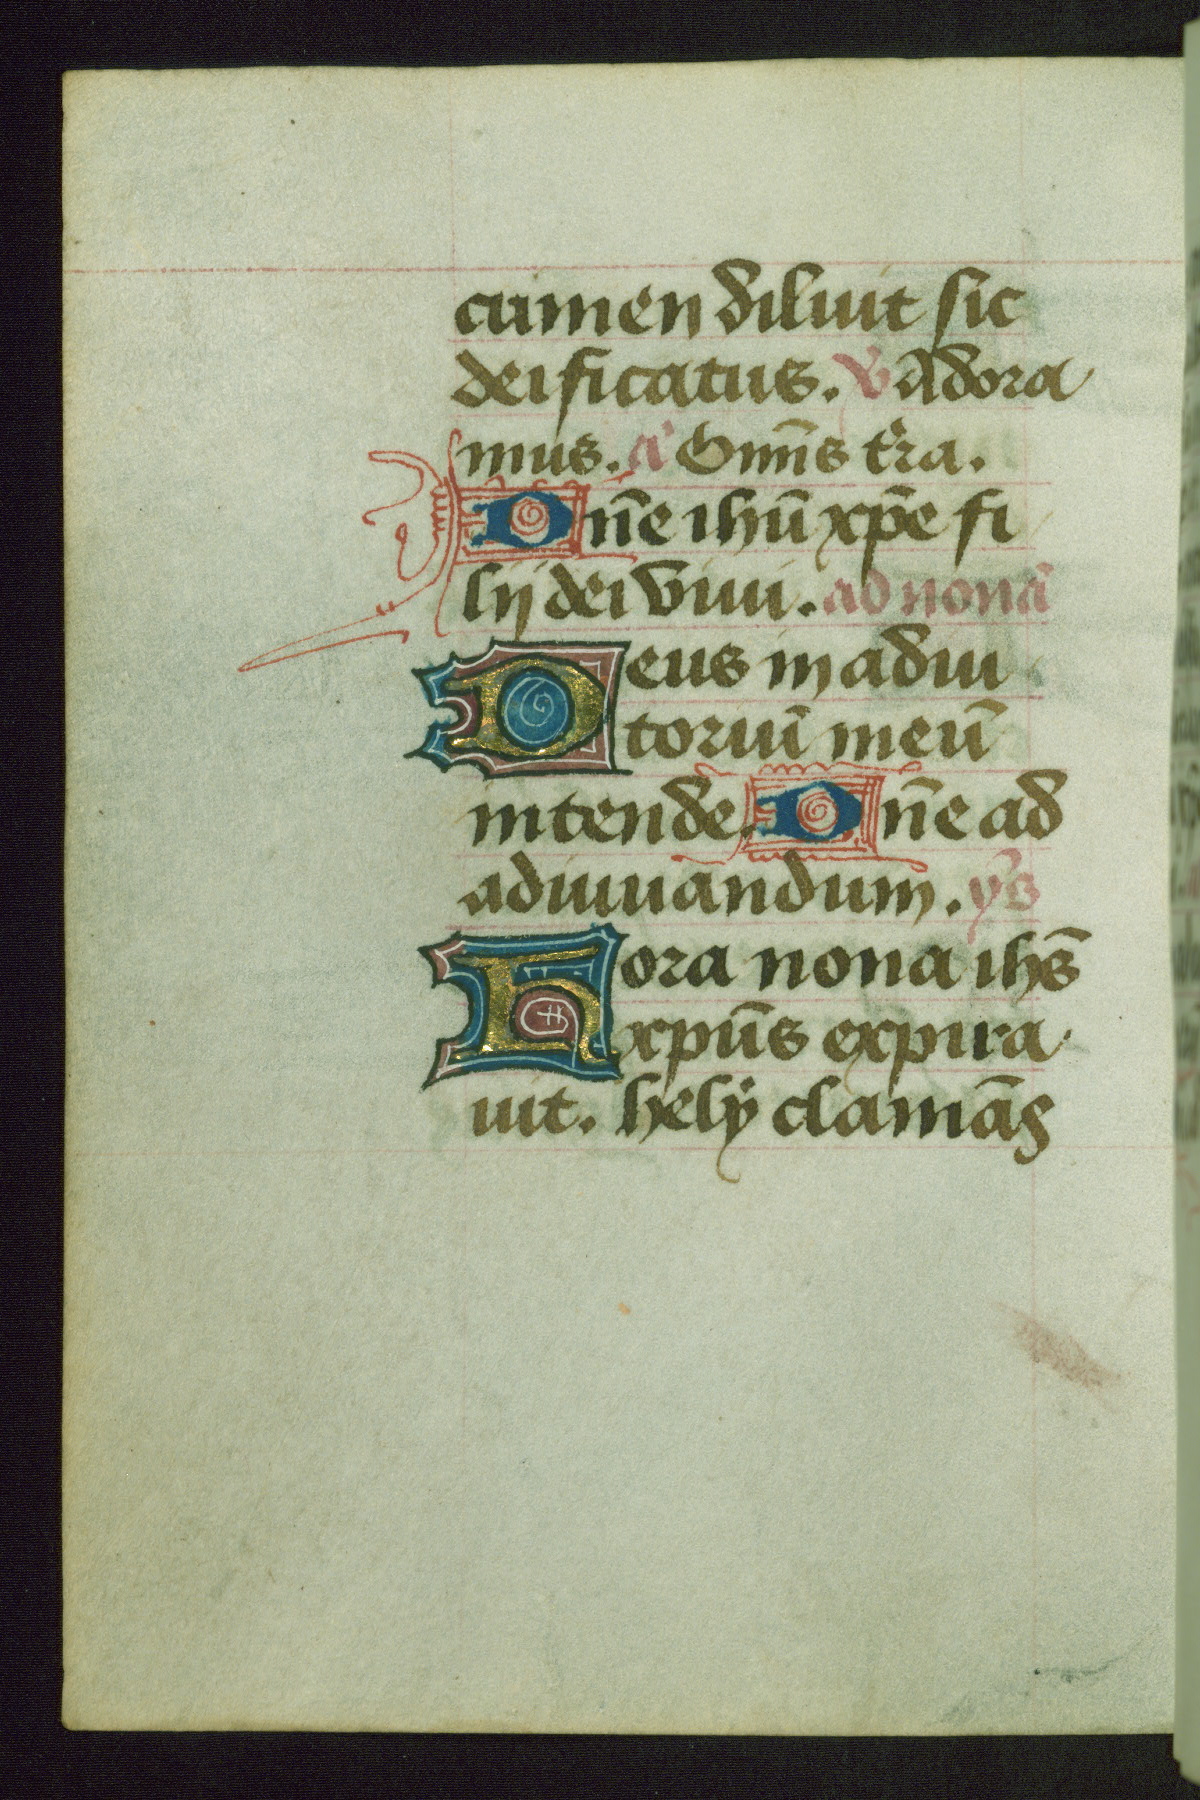 crimen diluit sic
deificatus. V Adora
mus. a͛ Om̄s t͛ra.
Dn̄e ihū xp̄e fi
lij dei viui. ad nonā
Deus in adiu
toriū meū
intende. Dn̄e ad
adiuuandum. ẏs
Hora nona ihs̄
xpūs expira
uit. hely clamās